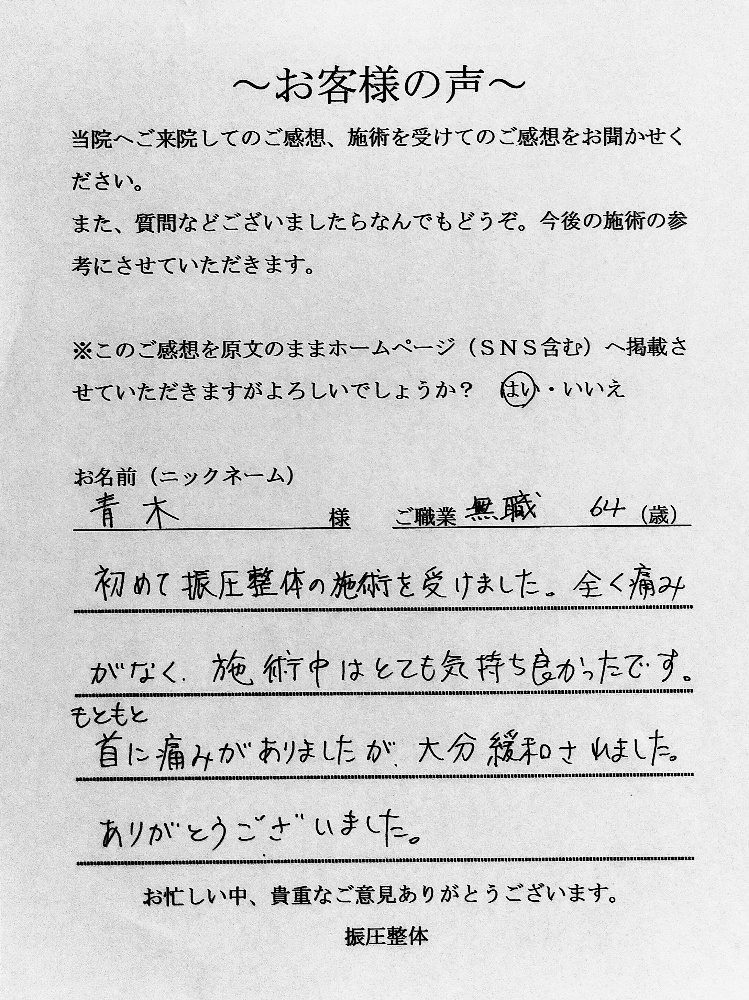 ～お客様の声～
当院へご来院してのご感想、施術を受けてのご感想をお聞かせく
ださい。
また、質問などございましたらなんでもどうぞ。今後の施術の参
考にさせていただきます。
※このご感想を原文のままホームページ（ＳＮＳ含む）へ掲載さ
せていただきますがよろしいでしょうか？　はい・いいえ
お名前（ニックネーム）
青木　様　ご職業　無職　64（歳）
初めて振圧整体の施術を受けました。全く痛み
がなく、施術中はとても気持ち良かったです。
もともと
首に痛みがありましたが、大分緩和されました。
ありがとうございました。
お忙しい中、貴重なご意見ありがとうございます。
振圧整体